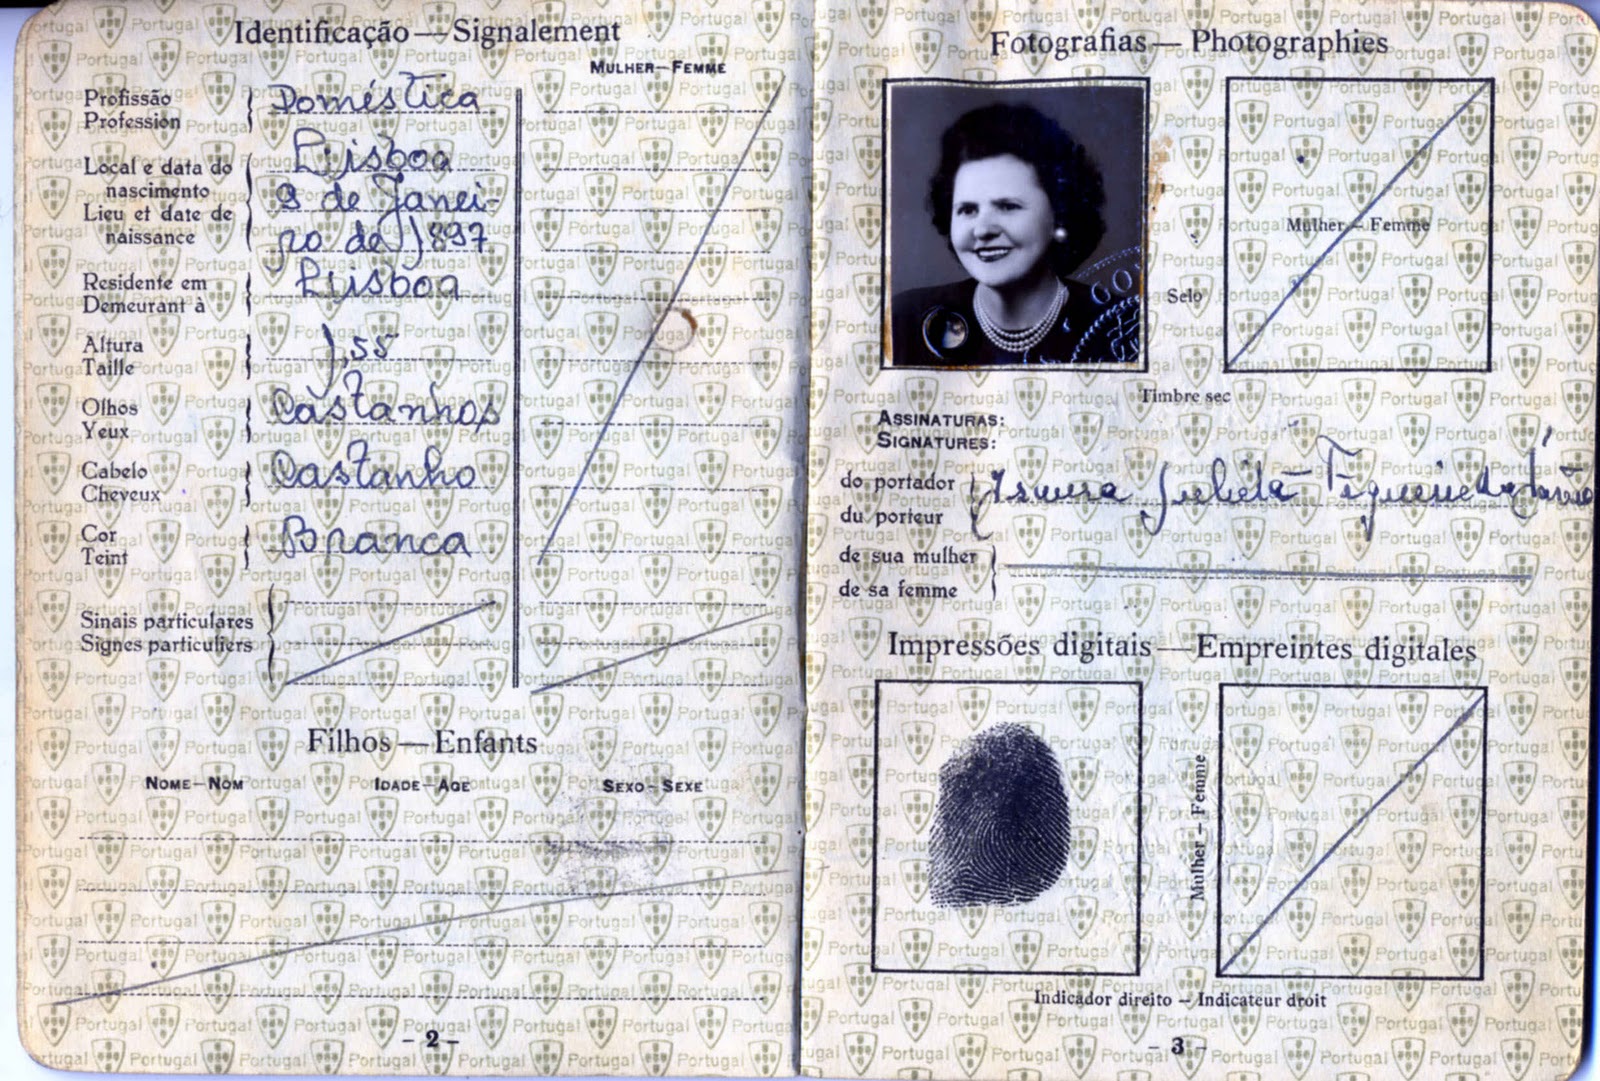 Identificação — Signalement
MULHER — FEMME
Profissão
Profession
Doméstica
Local e data do
nascimento
Lieu et date de
naissance
Lisboa
8 de Janei-
ro de 1897
Residente em
Demeurant à
Lisboa
Altura
Taille
1,55
Olhos
Yeux
Castanhos
Cabelo
Cheveux
Castanho
Cor
Teint
Branca
Sinais particulares
Signes particuliers
Filhos — Enfants
NOME — NOM
IDADE — AGE
SEXO — SEXE
- 2 -
Fotografias — Photographies
Mulher — Femme
Selo
Timbre sec
ASSINATURAS:
SIGNATURES:
do portador
du porteur
Julieta Figueiredo
de sua mulher
de sa femme
Impressões digitais — Empreintes digitales
Mulher — Femme
Indicador direito — Indicateur droit
- 3 -